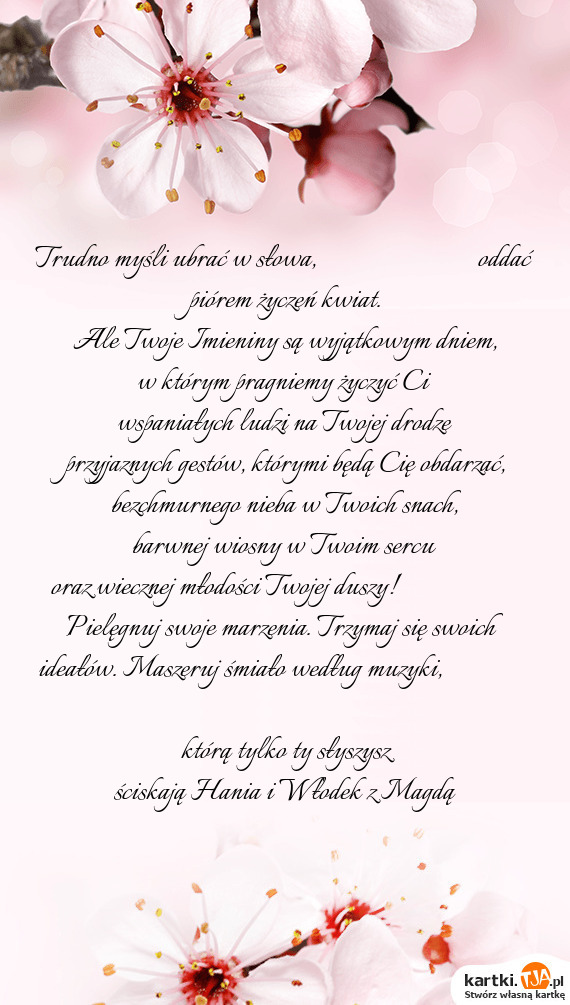 Trudno myśli ubrać w słowa, oddać
piórem życzeń kwiat.
Ale Twoje Imieniny są wyjątkowym dniem,
w którym pragniemy życzyć Ci
wspaniałych ludzi na Twojej drodze
przyjaznych gestów, którymi będą Cię obdarzać,
bezchmurnego nieba w Twoich snach,
barwnej wiosny w Twoim sercu
oraz wiecznej młodości Twojej duszy!
Pielęgnuj swoje marzenia. Trzymaj się swoich
ideałów. Maszeruj śmiało według muzyki,
którą tylko ty słyszysz
ściskają Hania i Włodek z Magdą
kartki.TJA.pl
Stwórz własną kartkę